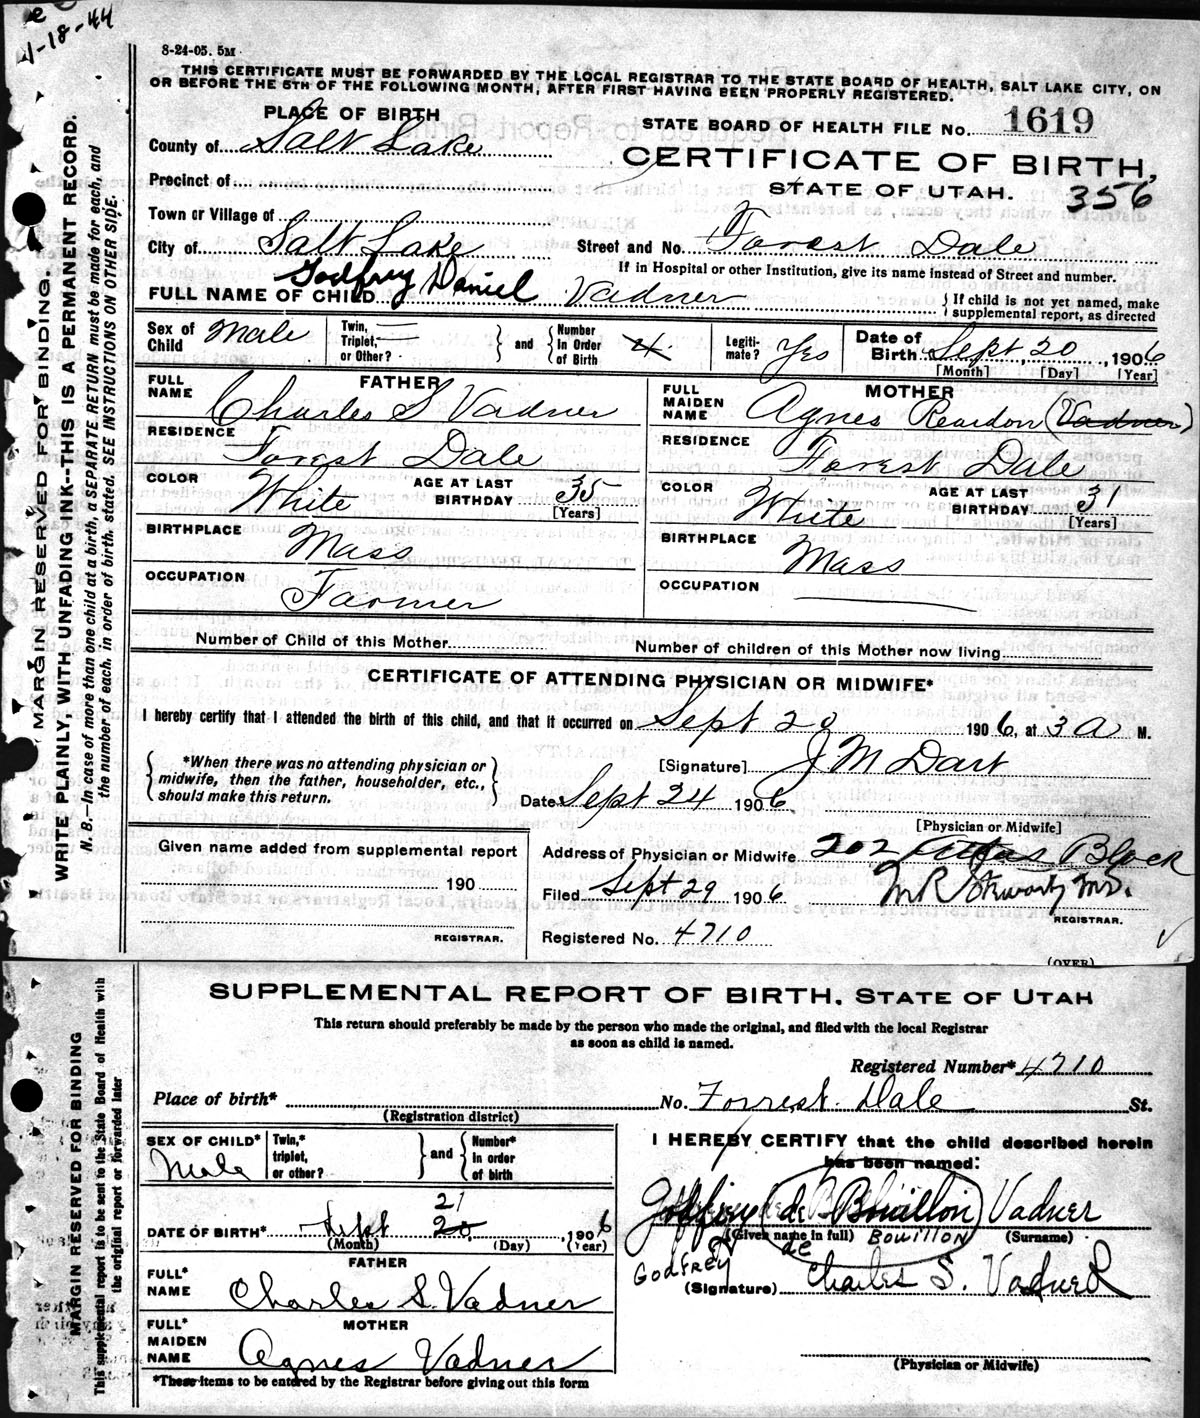 1-18-44
8-24-05. 5M
THIS CERTIFICATE MUST BE FORWARDED BY THE LOCAL REGISTRAR TO THE STATE BOARD OF HEALTH, SALT LAKE CITY, ON
OR BEFORE THE 5TH OF THE FOLLOWING MONTH, AFTER FIRST HAVING BEEN PROPERLY REGISTERED.
PLACE OF BIRTH
STATE BOARD OF HEALTH FILE No. 1619
County of Salt Lake
CERTIFICATE OF BIRTH,
Precinct of
STATE OF UTAH. 356
Town or Village of
City of Salt Lake Street and No. Forest Dale
If in Hospital or other Institution, give its name instead of Street and number.
FULL NAME OF CHILD Godfrey Daniel Vadner
If child is not yet named, make supplemental report, as directed
Sex of Child Male Twin, Triplet, or Other? and Number In Order of Birth 4 Legitimate? Yes Date of Birth Sept 20, 1906
[Month] [Day] [Year]
FATHER
FULL NAME Charles S Vadner
RESIDENCE Forest Dale
COLOR White AGE AT LAST BIRTHDAY 35 [Years]
BIRTHPLACE Mass
OCCUPATION Farmer
MOTHER
FULL MAIDEN NAME Agnes Reardon (Vadner)
RESIDENCE Forest Dale
COLOR White AGE AT LAST BIRTHDAY 31 [Years]
BIRTHPLACE Mass
OCCUPATION
Number of Child of this Mother Number of children of this Mother now living
CERTIFICATE OF ATTENDING PHYSICIAN OR MIDWIFE*
I hereby certify that I attended the birth of this child, and that it occurred on Sept 20 1906, at 3 A M.
*When there was no attending physician or
midwife, then the father, householder, etc.,
should make this return.
[Signature] J M Dart
Date Sept 24 1906
[Physician or Midwife]
Given name added from supplemental report
190
REGISTRAR.
Address of Physician or Midwife 202 Block
Filed Sept 29 1906
REGISTRAR.
Registered No. 4710
(OVER)
MARGIN RESERVED FOR BINDING.
WRITE PLAINLY, WITH UNFADING INK--THIS IS A PERMANENT RECORD.
N. B.—In case of more than one child at a birth, a SEPARATE RETURN must be made for each, and
the number of each, in order of birth, stated. SEE INSTRUCTIONS ON OTHER SIDE.
SUPPLEMENTAL REPORT OF BIRTH, STATE OF UTAH
This return should preferably be made by the person who made the original, and filed with the local Registrar
as soon as child is named.
Registered Number* 4710
Place of birth* No. Forrest Dale St.
(Registration district)
SEX OF CHILD* Male Twin,* triplet, or other? and Number* in order of birth
21
DATE OF BIRTH* Sept 20, 1906
(Month) (Day) (Year)
FATHER
FULL* NAME Charles S. Vadner
MOTHER
FULL* MAIDEN NAME Agnes Vadner
*These items to be entered by the Registrar before giving out this form
I HEREBY CERTIFY that the child described herein
has been named:
Godfrey de Bouillon Vadner
(Given name in full) BOUILLON (Surname)
GODFREY de
(Signature) Charles S. Vadner
(Physician or Midwife)
MARGIN RESERVED FOR BINDING
This supplemental report is to be sent to the State Board of Health with
the original report or forwarded later